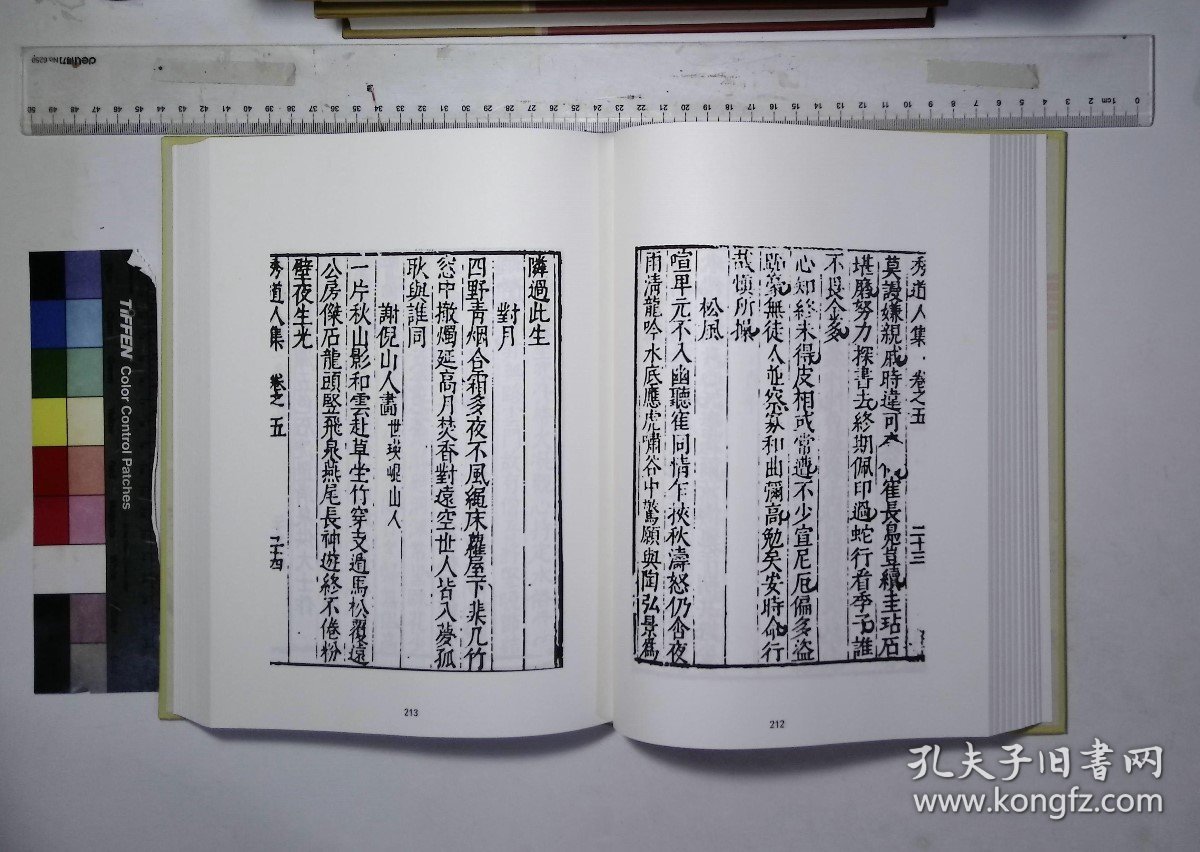 秀道人集 卷之五 二十三
莫謾嫌親戚時違可 崔長晁葛續圭玷石
堪磨努力探書去終期佩印過蛇行看季子誰
不畏金多
心知終未得皮相或常遭不少宣尼厄偏多盜
跖 無徒人並 和曲彌高勉矣安時命行
哉愼所操
松風
喧卑元不入幽聽隹同情乍挾秋濤怒仍含夜
雨清龍吟水底應虎嘯谷中驚願與陶弘景爲
隣過此生
對月
四野青烟合霜多夜不風繩床蘿屋下棐几竹
窓中撤燭延高月焚香對遠空世人皆入夢孤
耿與誰同
謝倪山人畫世瑛岷山人
一片秋山影和雲赴草坐竹穿支遁馬松覆遠
公房傑石龍頭竪飛泉燕尾長神遊終不倦粉
壁夜生光
秀道人集 卷之五 二十四
213
212
deli 得力 No 6250
50 49 48 47 46 45 44 43 42 41 40 39 38 37 36 35 34 33 32 31 30 29 28 27 26 25 24 23 22 21 20 19 18 17 16 15 14 13 12 11 10 9 8 7 6 5 4 3 2 1cm 0
TIFFEN Color Control Patches
孔夫子旧书网
www.kongfz.com